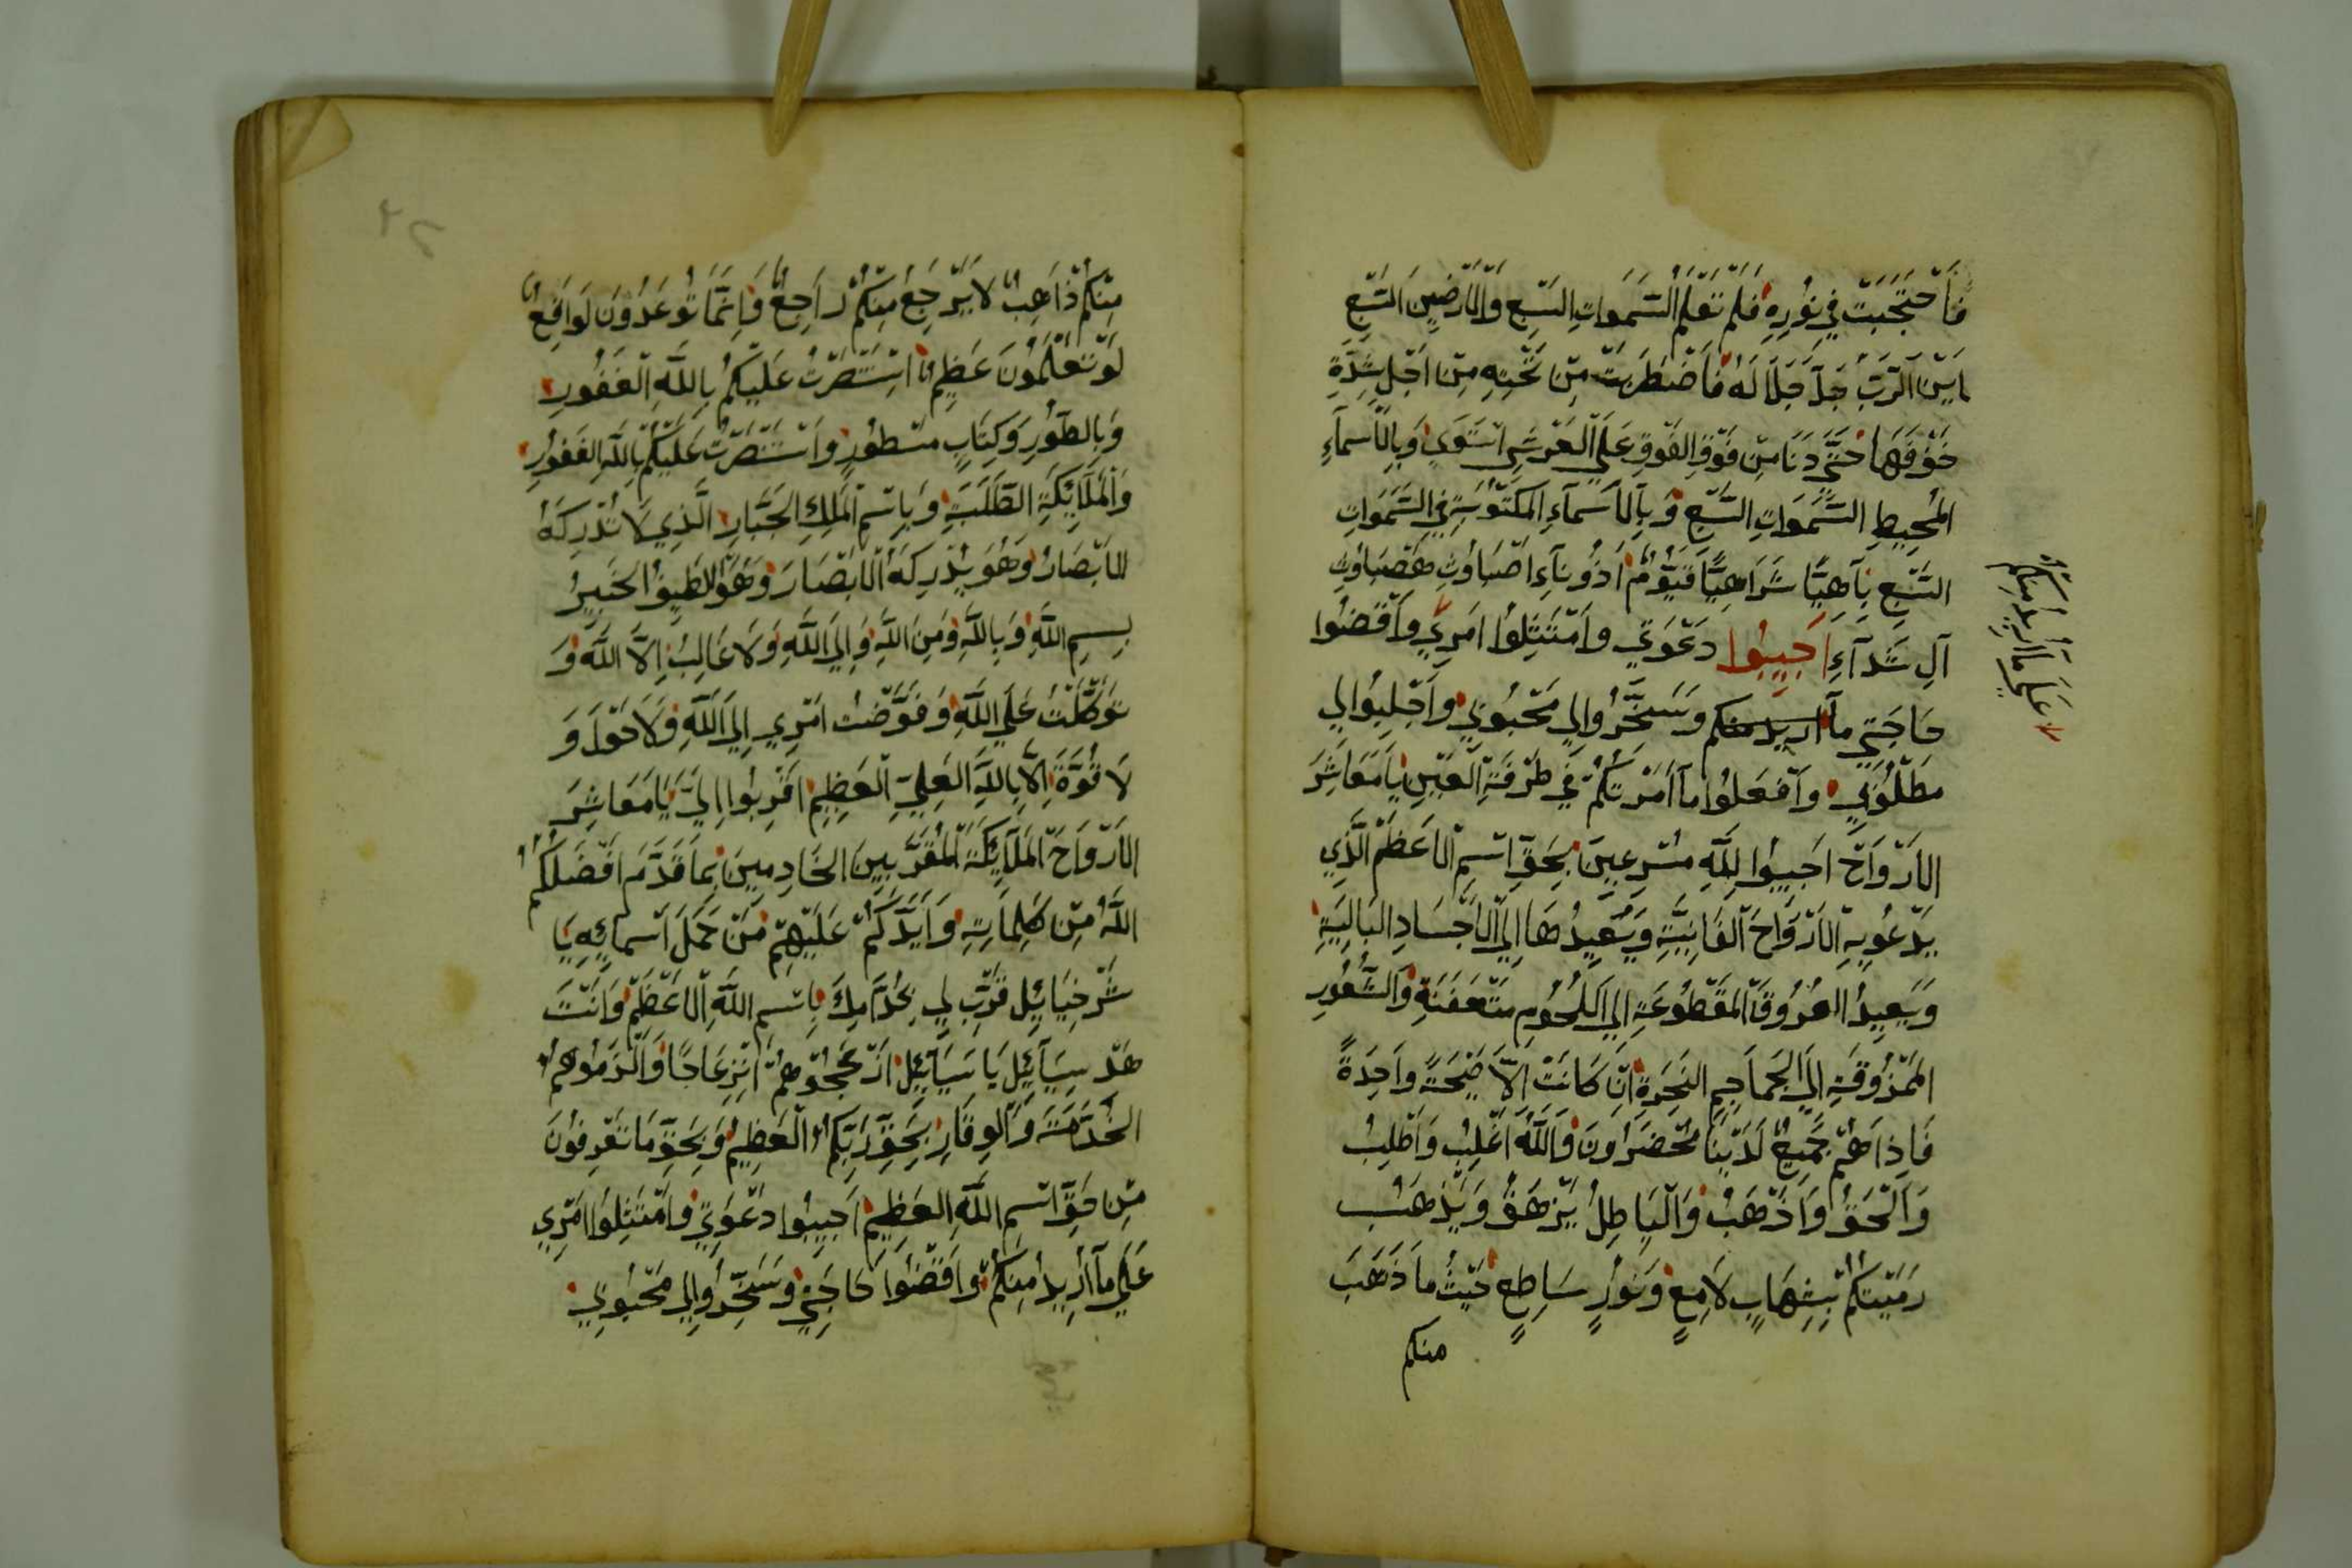 فَاَحْتَجَبَتْ فِي نُورِهِ فَلَمْ تَعْلَمْ السَّمَوَاتِ السَّبْعِ وَالْاَرْضِينَ السَّبْعِ
اَيْنَ الرَّبُّ جَلَّ جَلَالَهُ فَاَضْطَرَبَتْ مِنْ تَحْتِهِ مِنْ اَجْلِ شِدَّةِ
خَوْفَهَا حَتَّى دَنَا مِنْ فَوْقِ الفَوْقِ عَلَى الْعَرْشِ اسْتَوَى وَبِالْاَسْمَآءِ
المُحِيطِ السَّمَوَاتِ السَّبْعِ وَبِالْاَسْمَآءِ المَكْتُوبَةِ فِي السَّمَوَاتِ
السَّبْعِ بِآهِيًّا شَرَاهِيًّا قَيُّومٌ اَدُونَآءِ اَصْبَاوُثِ هَصْبَاوُثِ
آلِ شَدَآءِ اَجِيبُوا دَعْوَتِي وَامْتَثِلُوا اَمْرِي وَاَقْضُوا
عَلَى مَا اُرِيدُ مِنْكُمْ
حَاجَتِي مَا اريد منكم وَسَخِّرُوا لِي مَحْبُوبِي وَاَجْلِبُوا لِي
مَطْلُوبِي وَاَفْعَلُوا مَا اَمَرْتُكُمْ فِي طَرْفَةِ الْعَيْنِ يَا مَعَاشِرَ
الْاَرْوَاحْ اَجِيبُوا لِلَّهِ مُسْرِعِينَ بِحَقِّ اسْمِ الْاَعْظَمْ الَّذِي
يَدْعُو بِهِ الْاَرْوَاحَ الْفَانِيَّةِ وَيُعِيدُهَا اِلَى الْاَجْسَادِ البَالِيَةِ
وَيَعِيدُ العُرُوقَ الْمَقْطُوعَةِ اِلَى اللُحُومِ مُتْعَفَنَةِ وَالشُّعُورِ
المَمْزُوقَةِ اِلَى الجَمَاجِمِ النَخِرَةِ اِنْ كَانَتْ اِلَّا صَيْحَةً وَاحِدَةً
فَاِذَا هُمْ جَمِيعٌ لَدَيْنَا مُحْضَرَاونَ وَاللَّهُ اَغْلِبُ وَاَطْلِبُ
وَالْحَقُّ وَاَذْهَبُ وَالْبَاطِلُ يَزْهَقُ وَيَذْهَبُ
رَمَيْتُكُمْ بِشِهَابٍ لَامِعٍ وَنُورٍ سَاطِعٍ حَيْثُ مَا ذَهَبَ
منكم
مِنْكُمْ ذَاهِبٌ لَا يَرْجِعْ مِنْكُمْ رَاجِعٌ وَاِنَّمَا تُوعَدُونَ لَوَاقِعٌ
لَوْ تَعْلَمُونَ عَظِيمٌ اسْتَنْصَرْتُ عَلَيْكُمْ بِاللَّهِ الْغَفُورِ
وَبِالطُّورِ وَكِتَابٍ مَسْطُورٍ وَاَسْتَنْصَرْتُ عَلَيْكُمْ بِاللَّهِ الغَفُورِ
وَالْمَلَايِكَةِ الطَّلَبَةِ وَبِاسْمِ الْمَلِكِ الجَبَّارِ الَّذِي لَا تُدْرِكَهُ
الْاَبْصَارُ وَهُوَ يُدْرِكَهُ الْاَبْصَارَ وَهُوَ اللَّطِيفُ الخَبِيرُ
بِسْمِ اللَّهِ وَبِاللَّهِ وَمِنَ اللَّهِ وَاِلَى اللَّهِ وَلَا غَالِبُ اِلَّا اللَّهُ وَ
تَوَكَّلْتُ عَلَى اللَّهِ وَفَوَّضْتُ اَمْرِي اِلَى اللَّهِ وَلَا حَوْلَ وَ
لَا قُوَّةَ اِلَّا بِاللَّهِ العَلِيِّ الْعَظِيمِ اقْرِبُوا اِلَيَّ يَا مَعَاشِرَ
الْاَرْوَاحَ الْمَلَايِكَةَ الْمُقَرَّبِينَ الخَادِمِينَ بِمَا قَدَّمَ اَفْضَلَكُمُ
اللَّهُ مِنْ كَلِمَاتِهِ وَاَيَّدَكُمْ عَلَيْهِمْ مَنْ حَمَلَ اَسْمَائِهِ يَا
شَرْخِيَائِلِ قَرِّبْ لِي بِخُدَّامِكَ بِاسْمِ اللَّهِ الْاَعْظَمْ وَاَنْتَ
هَدْسِيَآئِلَ يَا سَيَآئِلِ ازْعِجُوهُمْ اَنْزِعَاجًا وَالْزَمُوهُمُ
الخَدَّمَةَ وَالْوِقَارِ بِحَقِّ رَبِّكُمُ الْعَظِيمُ وَبِحَقِّ مَا تَعْرِفُونَ
مِنْ حَقِّ اسْمِ اللَّهِ العَظِيمِ اَجِيبُوا دَعْوَتِي وَامْتَثِلُوا اَمْرِي
عَلَى مَآ اُرِيدُ مِنْكُمْ وَاَقْضُوا حَاجَتِي وَسَخِّرُوا لِي مَحْبُوبِي